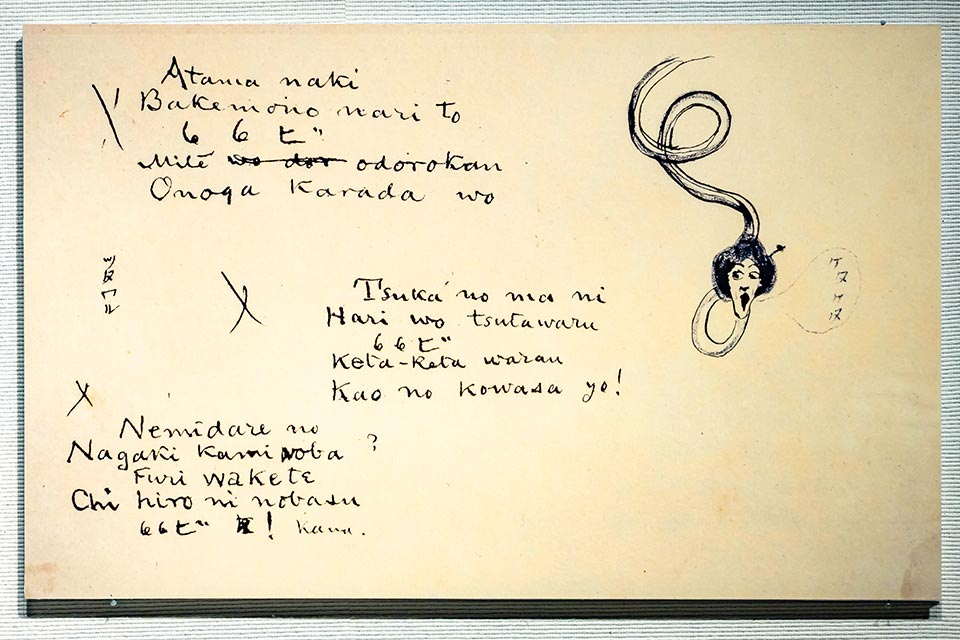 Atama naki
Bakemono nari to
6 6 ヒ"
Mite wo dor odorokan
Onoga Karada wo
ケタケタ
ツタワル
Tsuka no ma ni
Hari wo tsutawaru
66ヒ"
Keta-Keta warau
Kao no kowasa yo!
Nemidare no
Nagaki kami woba ?
Furi wakete
Chi hiro ni nobasu
66ヒ" ! Kana.